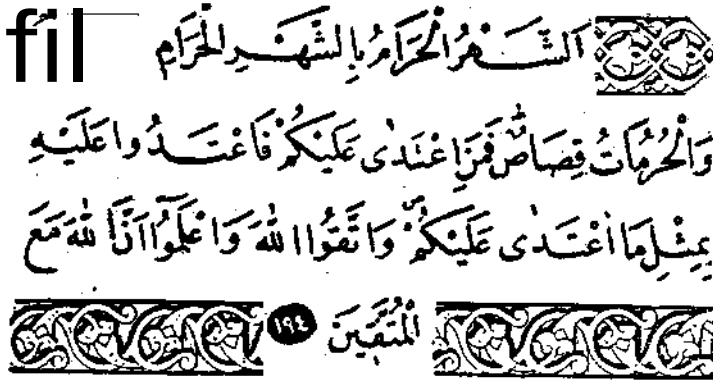 fil
اَلشَّهْرُ الْحَرَامُ بِالشَّهْرِ الْحَرَامِ
وَالْحُرُمَاتُ قِصَاصٌ فَمَنِ اعْتَدٰى عَلَيْكُمْ فَاعْتَدُوا عَلَيْهِ
بِمِثْلِ مَا اعْتَدٰى عَلَيْكُمْ وَاتَّقُوا اللّٰهَ وَاعْلَمُٓوا اَنَّ اللّٰهَ مَعَ
الْمُتَّقٖينَ ١٩٤